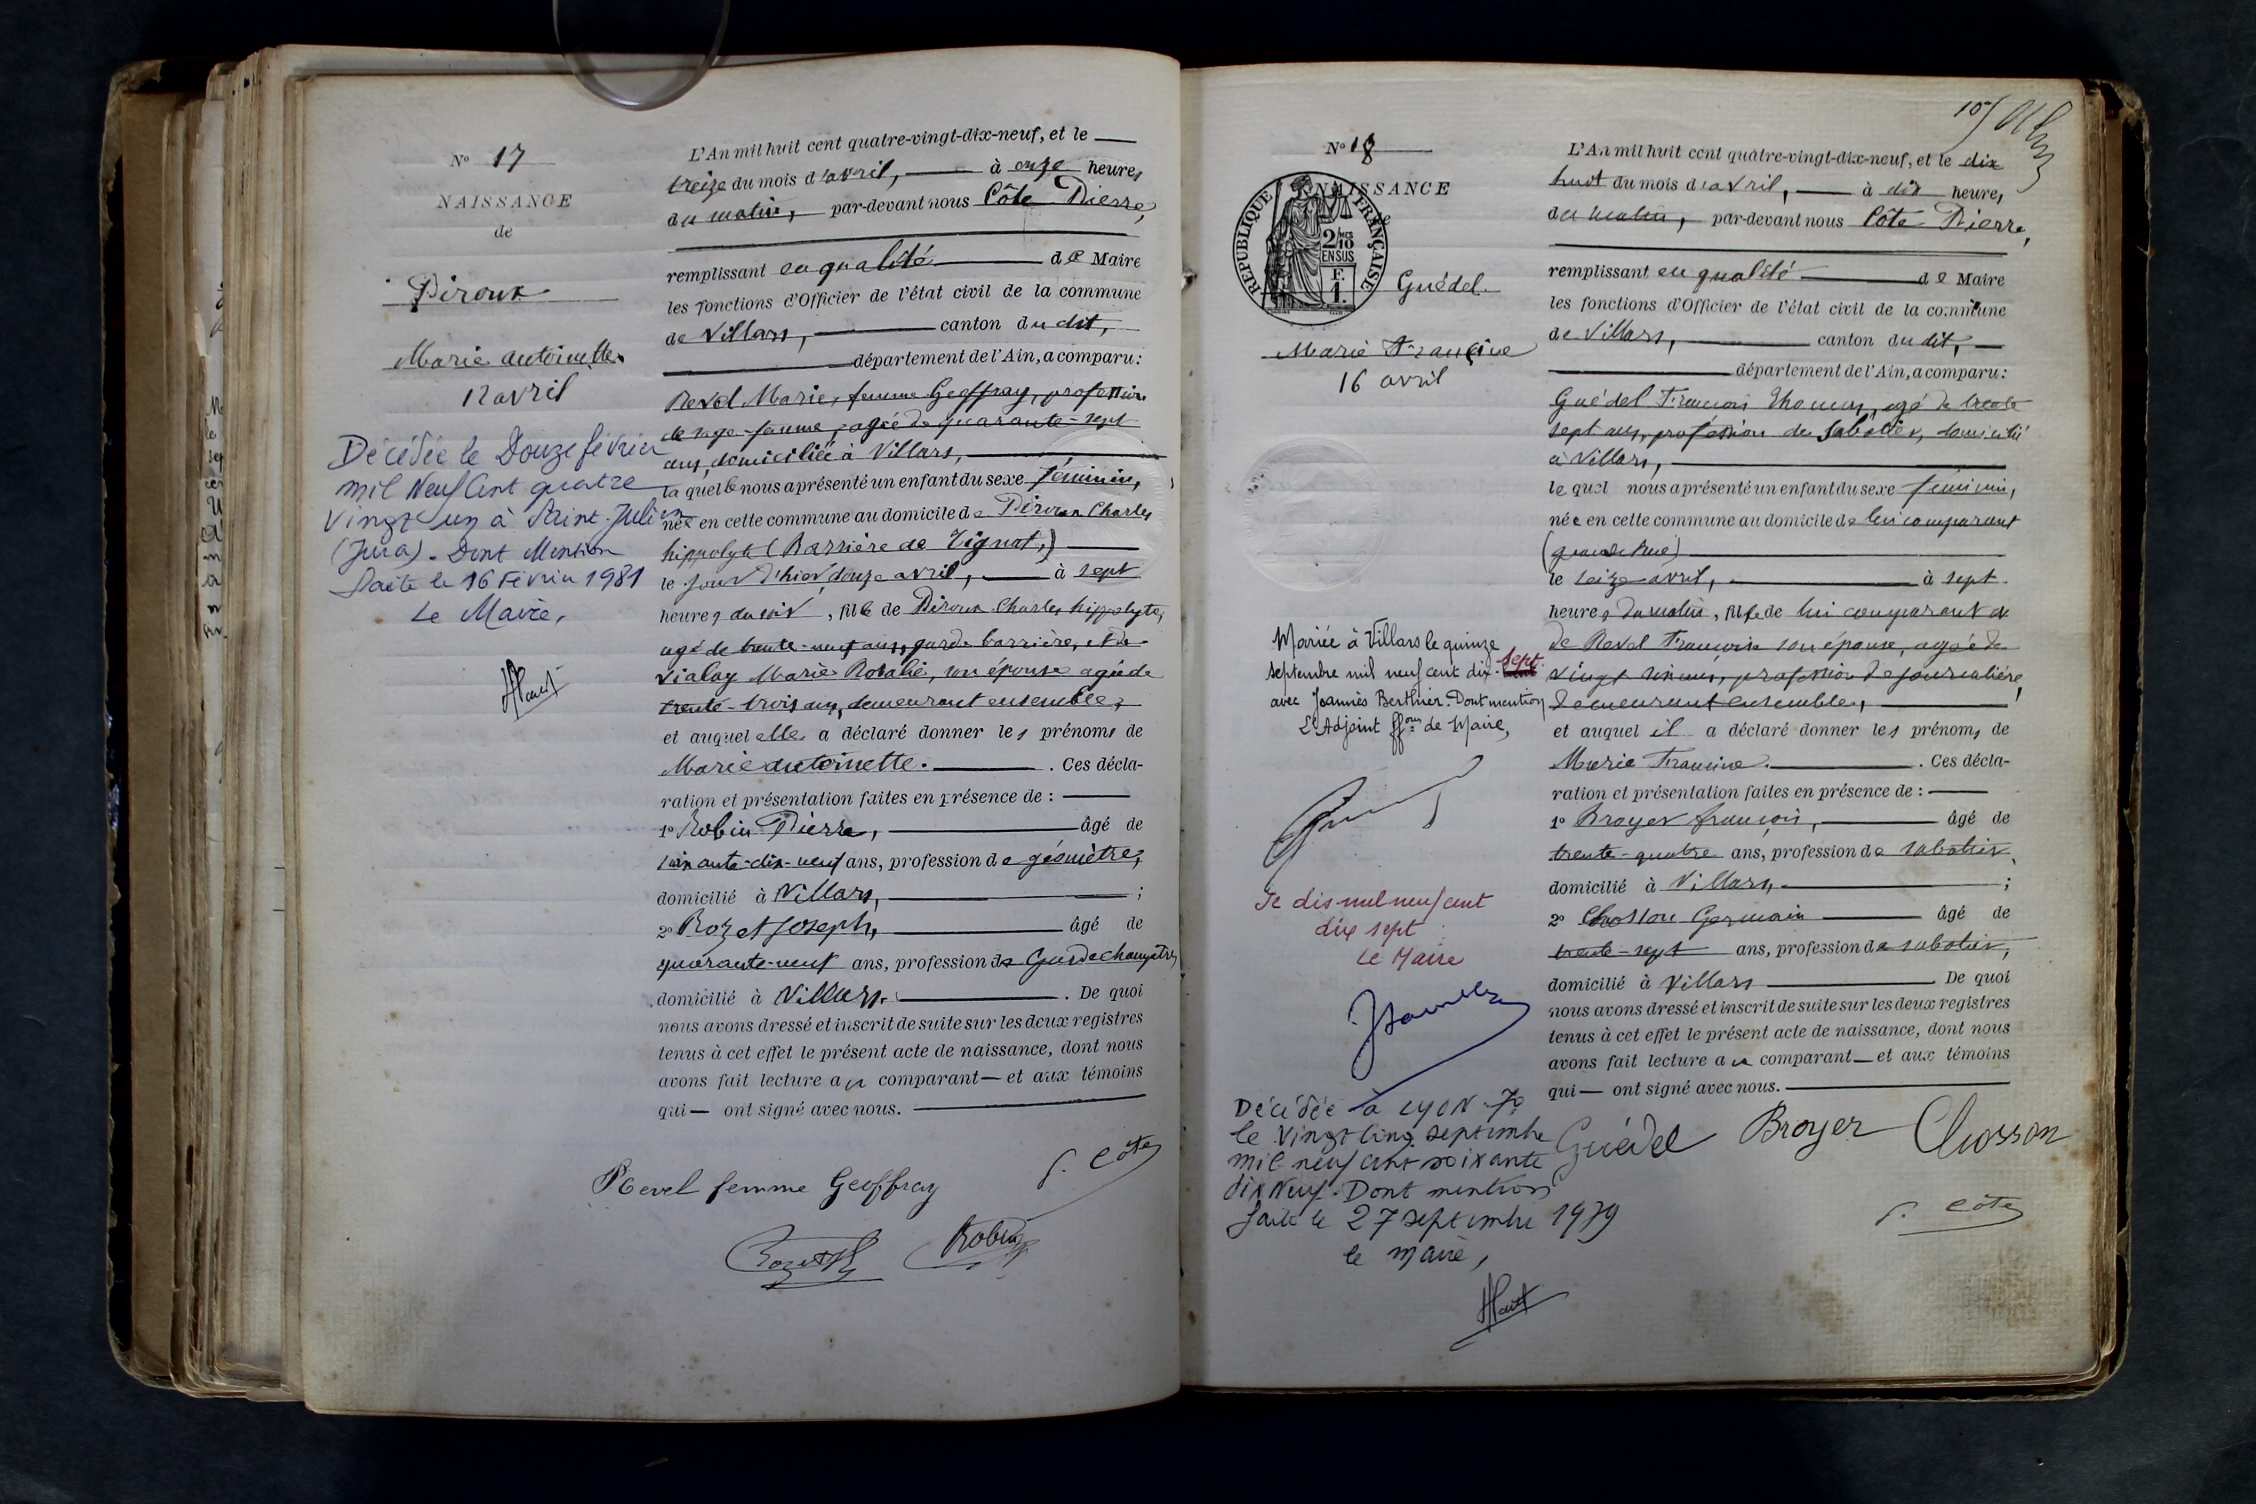 N° 17
NAISSANCE
de
Piroux
Marie Antoinette
12 avril
Décédée le Douze février
mil Neuf Cent quatre
Vingt un à Saint-Julien
(Jura). Dont Mention
faite le 16 Février 1981
Le Maire,
L'An mil huit cent quatre-vingt-dix-neuf, et le
treize du mois d'avril, à onze heures
du matin, par-devant nous Côte Pierre,
remplissant en qualité de Maire
les fonctions d'Officier de l'état civil de la commune
de Villars, canton du dit,
département de l'Ain, a comparu:
Revel Marie, femme Geoffray, profession
de sage-femme, agée de quarante-sept
ans, domiciliée à Villars,
la quelle nous a présenté un enfant du sexe féminin,
née en cette commune au domicile de Piroux Charles
hippolyte (Barrière de Tignat,)
le jour d'hier douze avril, à sept
heures du soir, fille de Piroux Charles hippolyte,
agé de trente-neuf ans, garde barrière, et de
Vialay Marie Rosalie, son épouse agée de
trente-trois ans, demeurant ensemble,
et auquel elle a déclaré donner les prénoms de
Marie Antoinette. Ces décla-
ration et présentation faites en présence de :
1° Robin Pierre, âgé de
soixante-dix-neuf ans, profession de géomètre,
domicilié à Villars, ;
2° Rozet Joseph, âgé de
quarante-neuf ans, profession de Garde champêtre,
domicilié à Villars. De quoi
nous avons dressé et inscrit de suite sur les deux registres
tenus à cet effet le présent acte de naissance, dont nous
avons fait lecture au comparant et aux témoins
qui ont signé avec nous.
Revel femme Geoffray
P. Côte
Rozet
Robin
N° 18
NAISSANCE
RÉPUBLIQUE FRANÇAISE
2/10
EN SUS
F.
1.
Guédel
Marie Francine
16 avril
Mariée à Villars le quinze
septembre mil neuf cent dix-sept
avec Joannès Berthier. Dont mention
L'Adjoint ff.ons de Maire,
Je dis mil neuf cent
dix sept
Le Maire
Décédée à LYON 7e
le Vingt Cinq septembre
mil neuf cent soixante
dix Neuf. Dont mention
faite le 27 septembre 1979
le Maire,
L'An mil huit cent quatre-vingt-dix-neuf, et le dix
huit du mois d'avril, à dix heures,
du matin, par-devant nous Côte Pierre,
remplissant en qualité de Maire
les fonctions d'Officier de l'état civil de la commune
de Villars, canton du dit,
département de l'Ain, a comparu:
Guédel François Thomas, agé de trente
sept ans, profession de sabotier, domicilié
à Villars,
le quel nous a présenté un enfant du sexe féminin,
née en cette commune au domicile de lui comparant
(grande Rue)
le seize avril, à sept
heures du matin, fille de lui comparant et
de Revol Françoise son épouse, agée de
vingt six ans, profession de journalière,
demeurant ensemble,
et auquel il a déclaré donner les prénoms de
Marie Francine. Ces décla-
ration et présentation faites en présence de :
1° Broyer françois, âgé de
trente-quatre ans, profession de sabotier,
domicilié à Villars, ;
2° Chosson Germain âgé de
trente-sept ans, profession de sabotier,
domicilié à Villars De quoi
nous avons dressé et inscrit de suite sur les deux registres
tenus à cet effet le présent acte de naissance, dont nous
avons fait lecture au comparant et aux témoins
qui ont signé avec nous.
Guédel Broyer Chosson
P. Côte